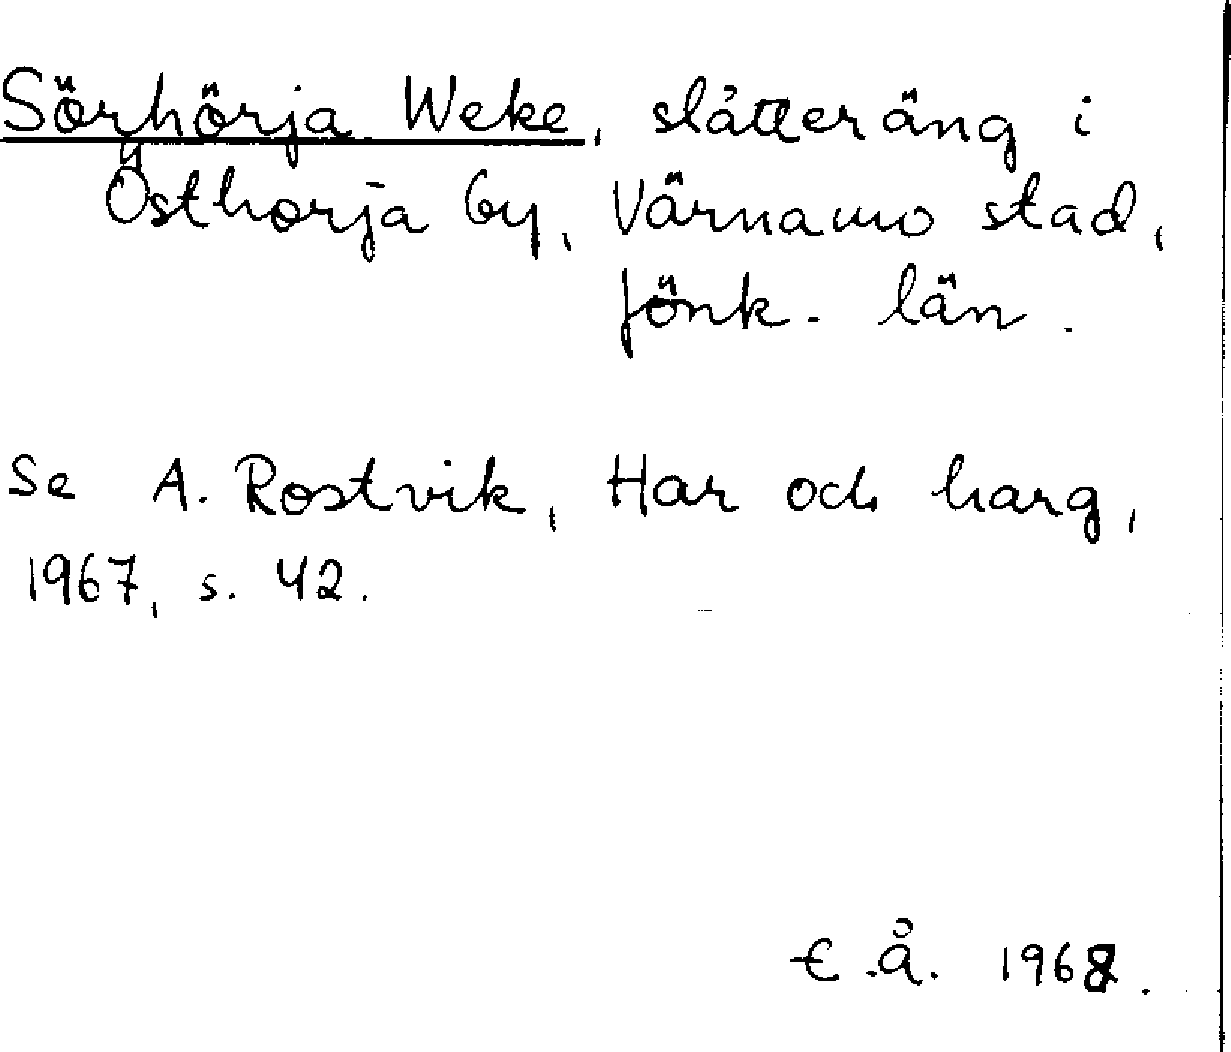 Sörhörja Weke, slåtteräng i
Östhorja by, Värnamo stad,
Jönk. län.
Se A. Rostvik, Har och harg,
1967, s. 42.
E.Å. 1968.